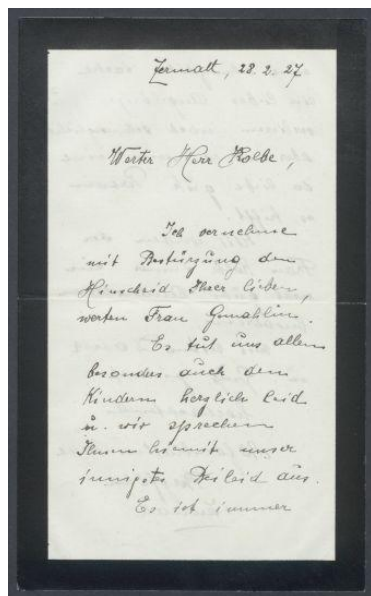 Zermatt, 28.2.27.
Werter Herr Kolbe,
Ich vernehme
mit Bestürzung den
Hinscheid Ihrer lieben,
werten Frau Gemahlin.
Es tut uns allen
besonders auch den
Kindern herzlich leid
u. wir sprechen
Ihnen hiemit unser
innigstes Beileid aus.
Es ist immer